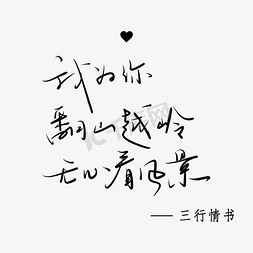 我为你
翻山越岭
无心看风景
——三行情书